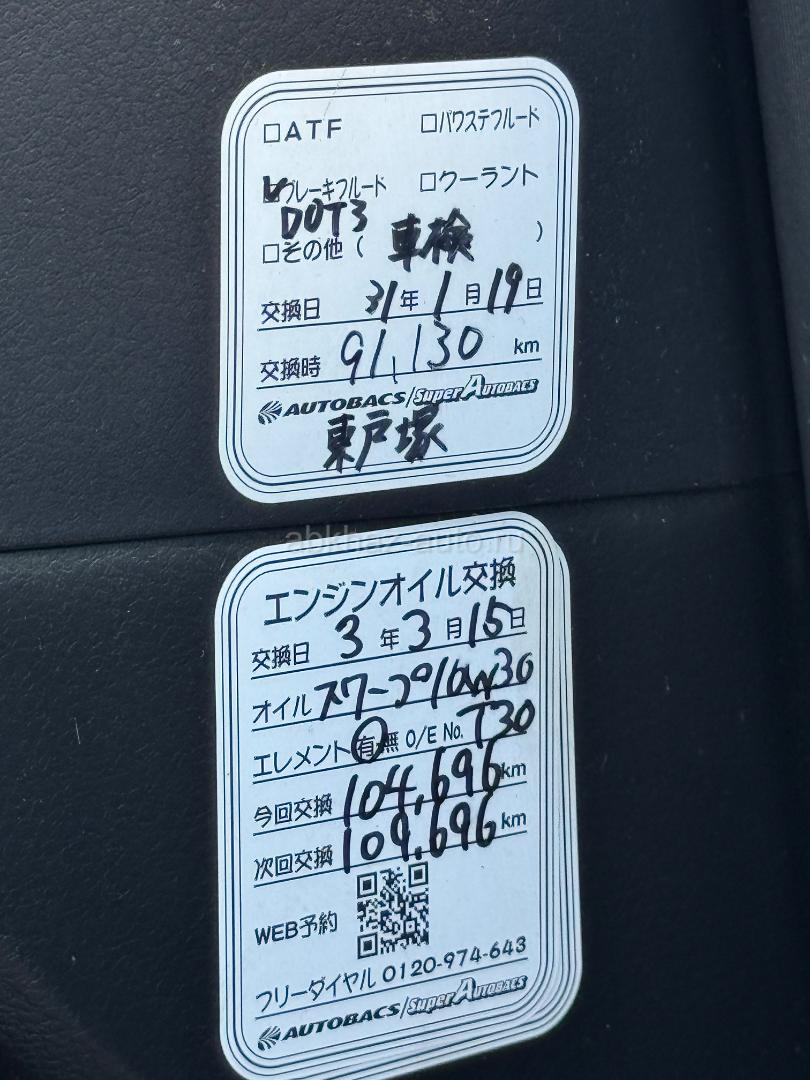 □ATF □パワステフルード
☑ブレーキフルード □クーラント
DOT3
□その他（ 車検 ）
交換日 31年 1月 19日
交換時 91,130 km
AUTOBACS/Super AUTOBACS
東戸塚
abkhaz-auto.ru
エンジンオイル交換
交換日 3年 3月 15日
オイル 10W30
エレメント 有・無 O/E No. T30
今回交換 104,696km
次回交換 109,696km
WEB予約
フリーダイヤル 0120-974-643
AUTOBACS/Super AUTOBACS